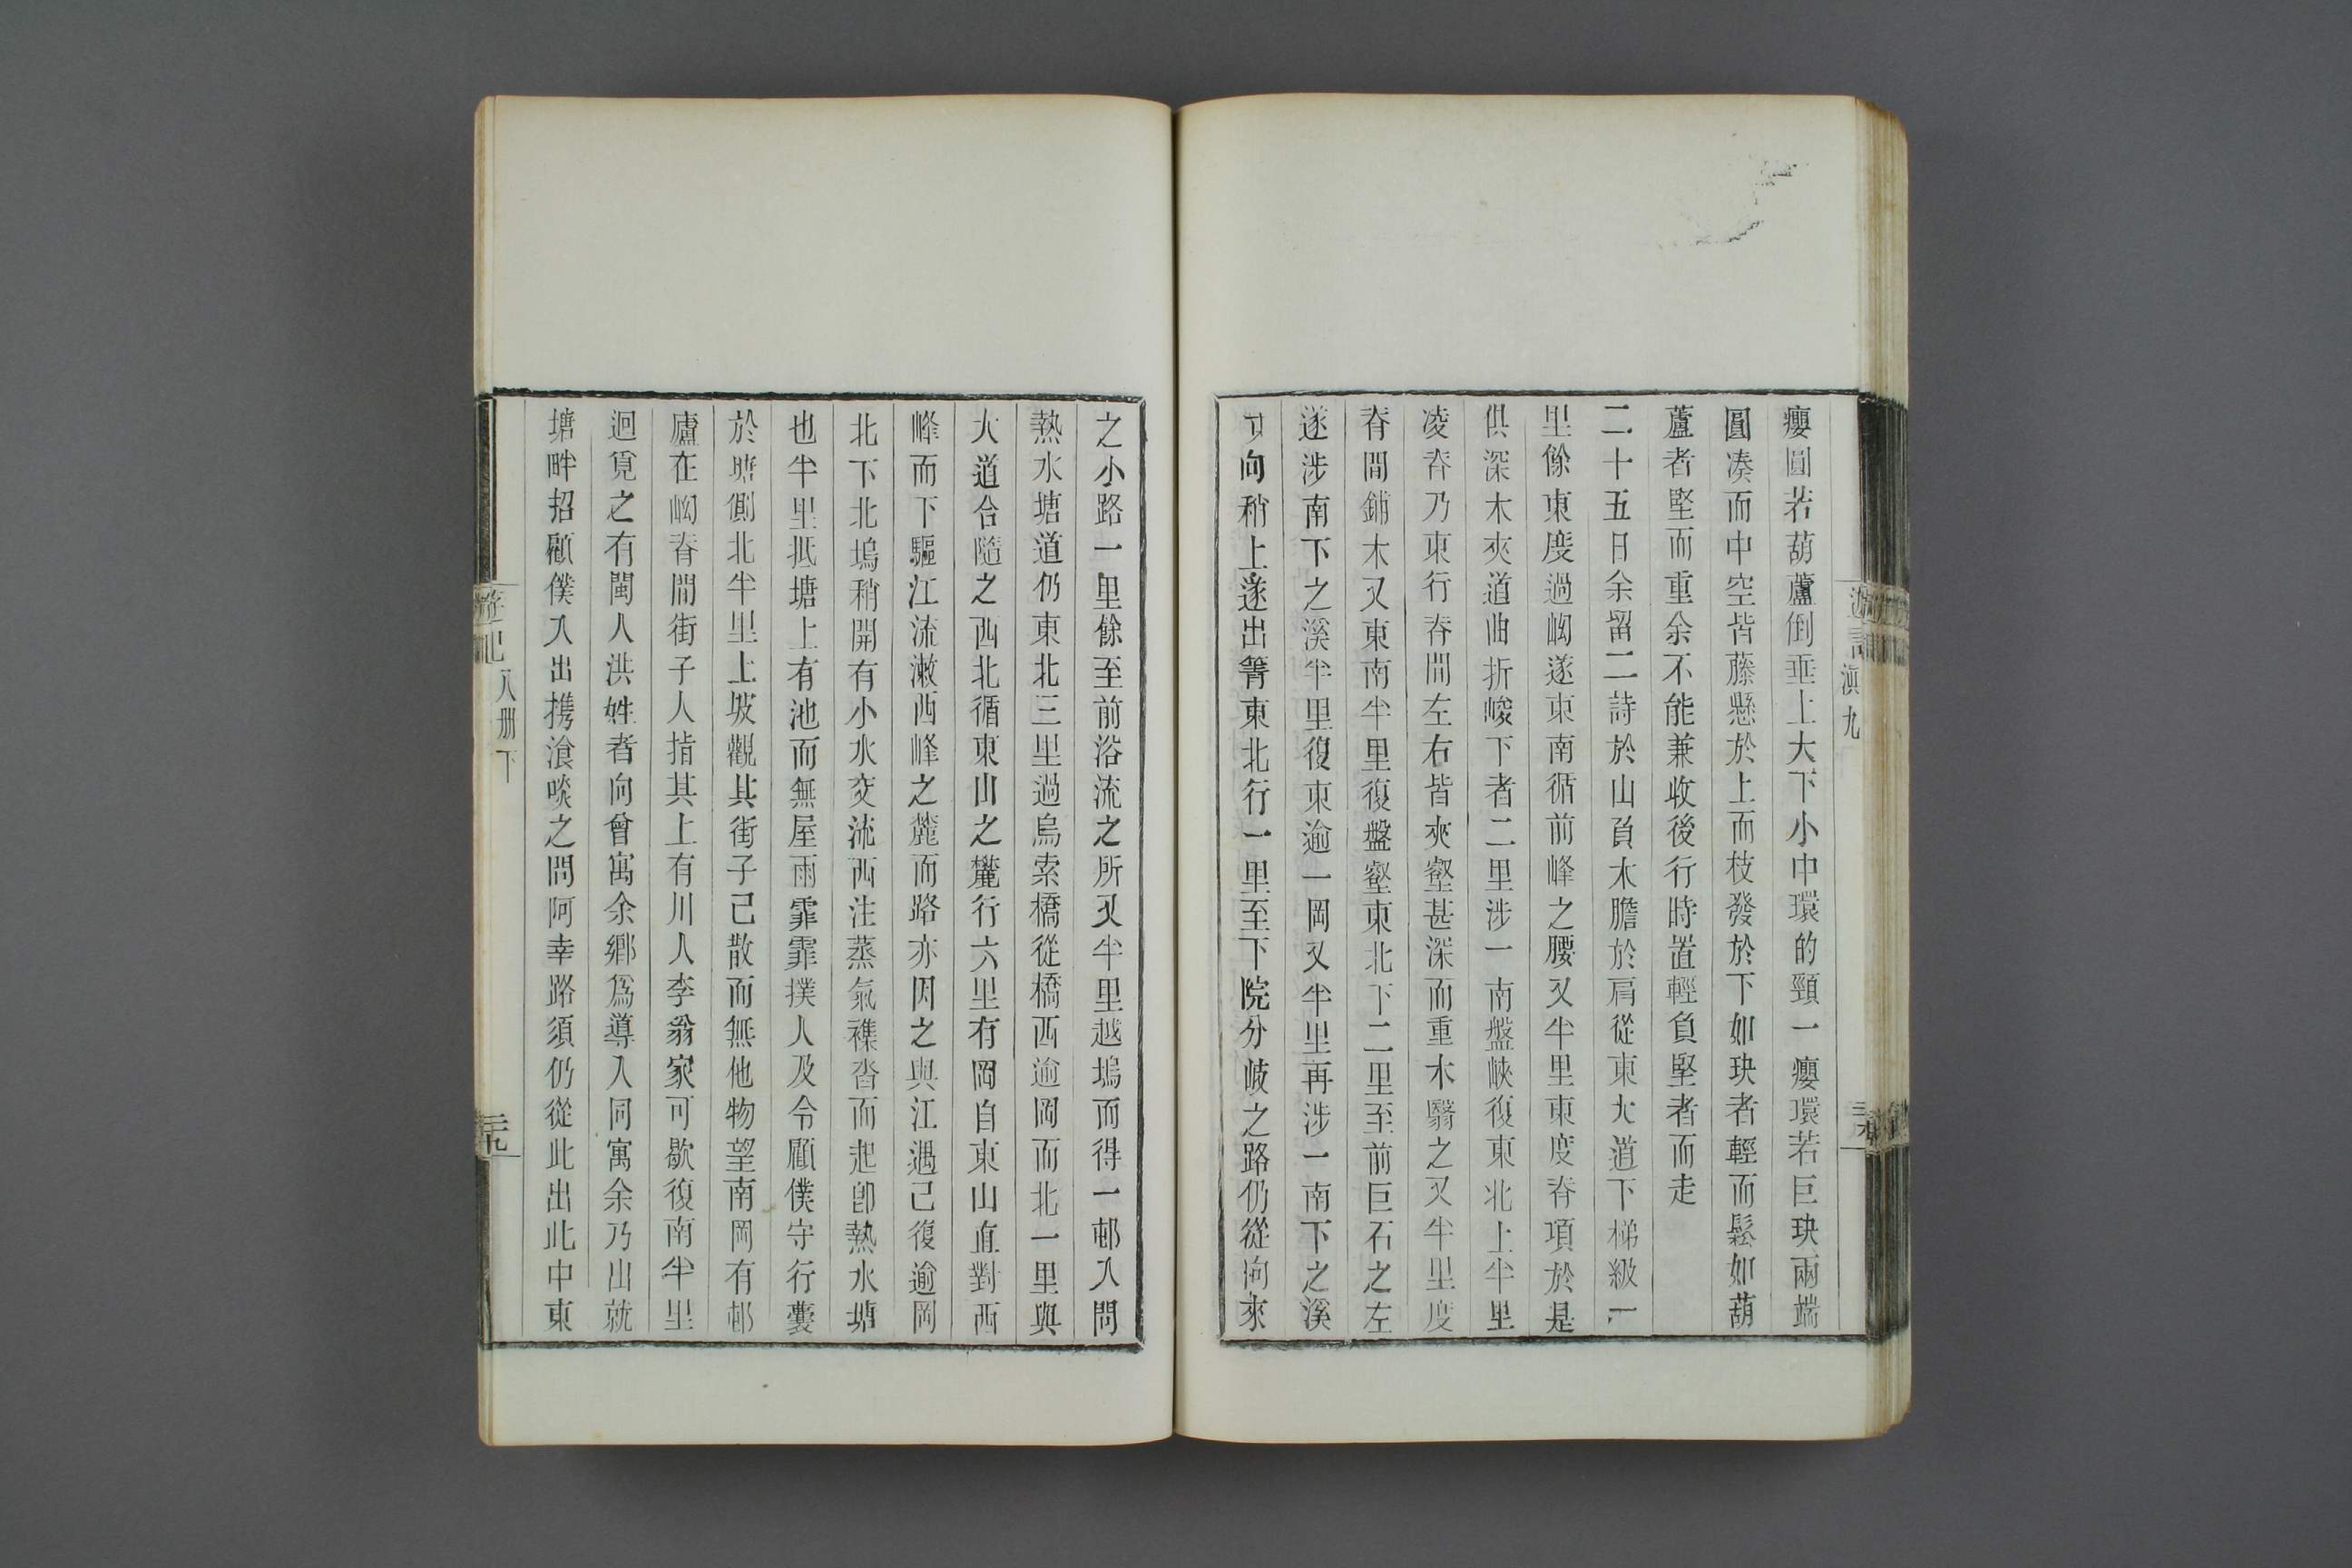 遊記
滇九
癭圓若葫蘆倒垂上大下小中環的頸一癭環若巨玦兩端
圓湊而中空皆藤懸於上而枝發於下如玦者輕而鬆如葫
蘆者堅而重余不能兼收後行時置輕負堅者而走
二十五日余留二詩於山負木膽於肩從東大道下梯級一
里餘東度過峽遂東南循前峰之腰又半里東度脊項於是
俱深木夾道曲折峻下者二里涉一南盤峽復東北上半里
凌脊乃東行脊間左右皆夾壑甚深而重木翳之又半里度
脊間鋪木又東南半里復盤壑東北下二里至前巨石之左
遂涉南下之溪半里復東逾一岡又半里再涉一南下之溪
向稍上遂出箐東北行一里至下院分岐之路仍從向來
之小路一里餘至前浴流之所又半里越塢而得一邨入問
熱水塘道仍東北三里過烏索橋從橋西逾岡而北一里與
大道合隨之西北循東山之麓行六里有岡自東山直對西
峰而下驅江流漱西峰之麓而路亦因之與江遇已復逾岡
北下北塢稍開有小水交流西注蒸氣襍沓而起卽熱水塘
也半里抵塘上有池而無屋雨霏霏撲人及令顧僕守行囊
於塘側北半里上坡觀其街子已散而無他物望南岡有邨
廬在峽脊間街子人指其上有川人李翁家可歇復南半里
迴覓之有閩人洪姓者向曾寓余鄉爲導入同寓余乃出就
塘畔招顧僕入出攜飡啖之問阿幸路須仍從此出此中東
遊記
八册下